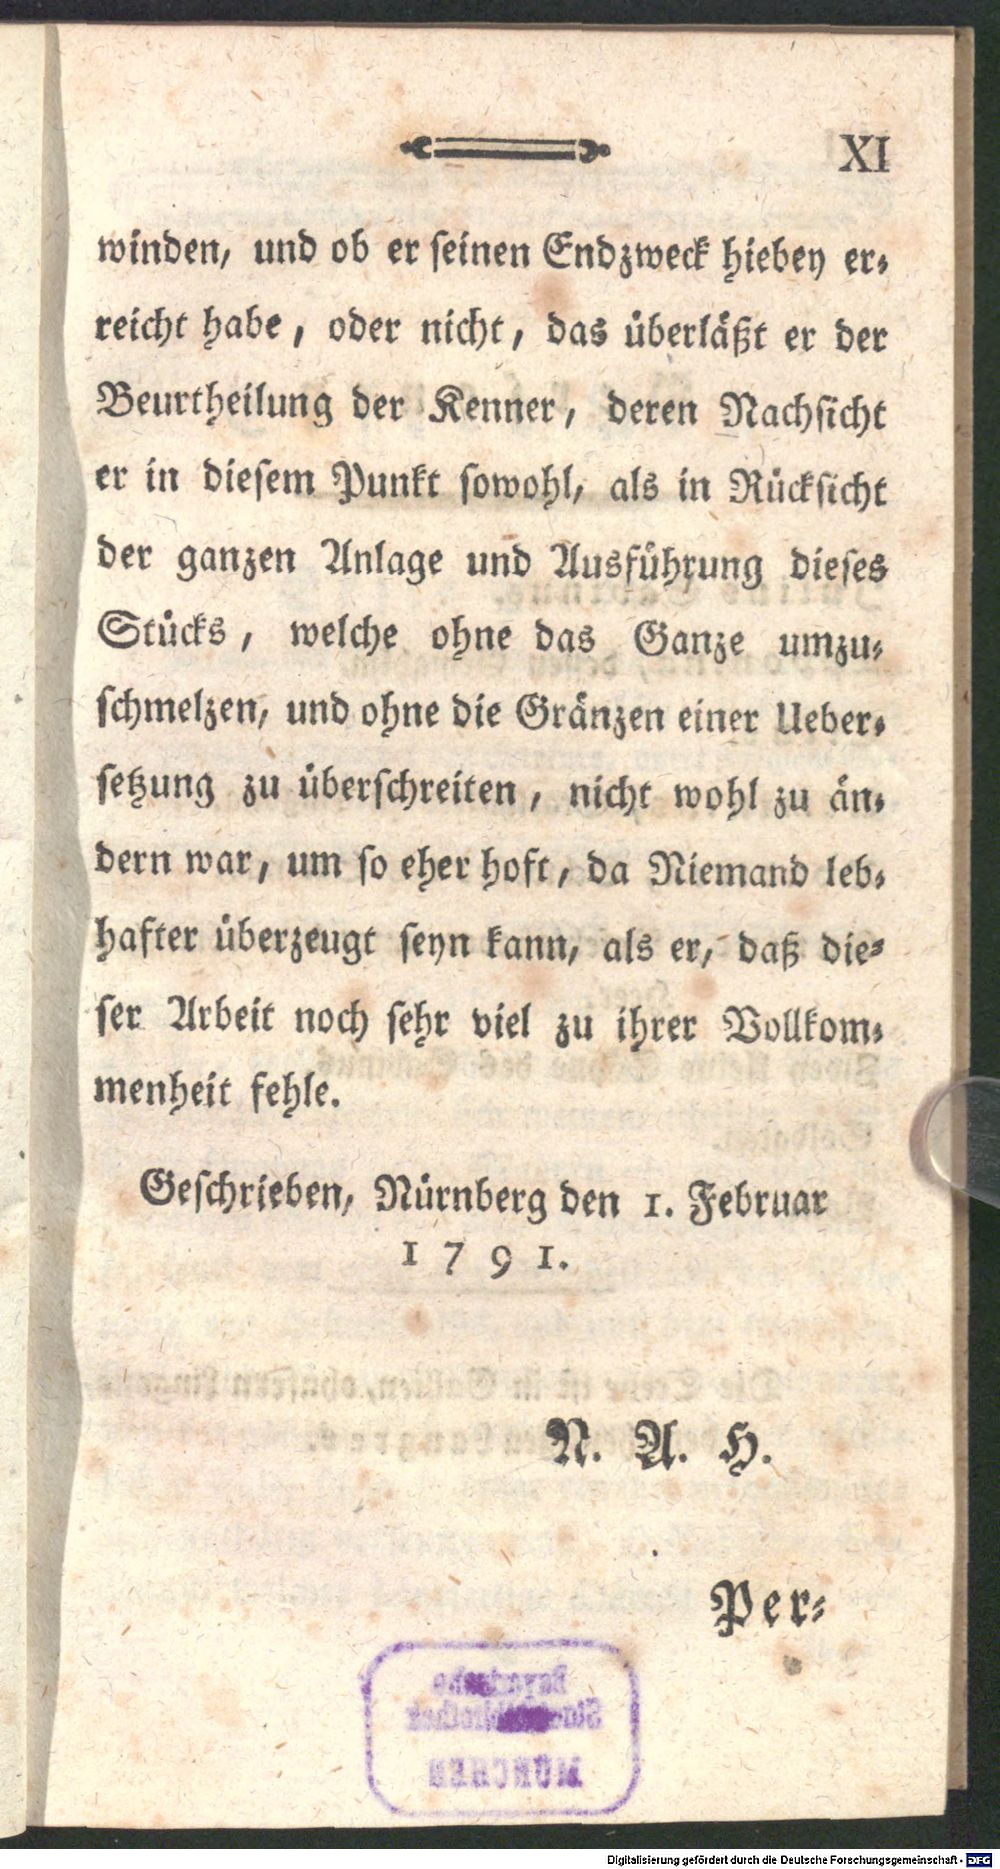 XI
winden, und ob er ſeinen Endzweck hiebey er⸗
reicht habe, oder nicht, das überläßt er der
Beurtheilung der Kenner, deren Nachſicht
er in dieſem Punkt ſowohl, als in Rückſicht
der ganzen Anlage und Ausführung dieſes
Stücks, welche ohne das Ganze umzu⸗
ſchmelzen, und ohne die Gränzen einer Ueber⸗
ſetzung zu überſchreiten, nicht wohl zu än⸗
dern war, um ſo eher hoft, da Niemand leb⸗
hafter überzeugt ſeyn kann, als er, daß die⸗
ſer Arbeit noch ſehr viel zu ihrer Vollkom⸗
menheit fehle.
Geſchrieben, Nürnberg den 1. Februar
1791.
N. A. H.
Per⸗
Bayerische
Staatsbibliothek
MÜNCHEN
Digitalisierung gefördert durch die Deutsche Forschungsgemeinschaft - DFG